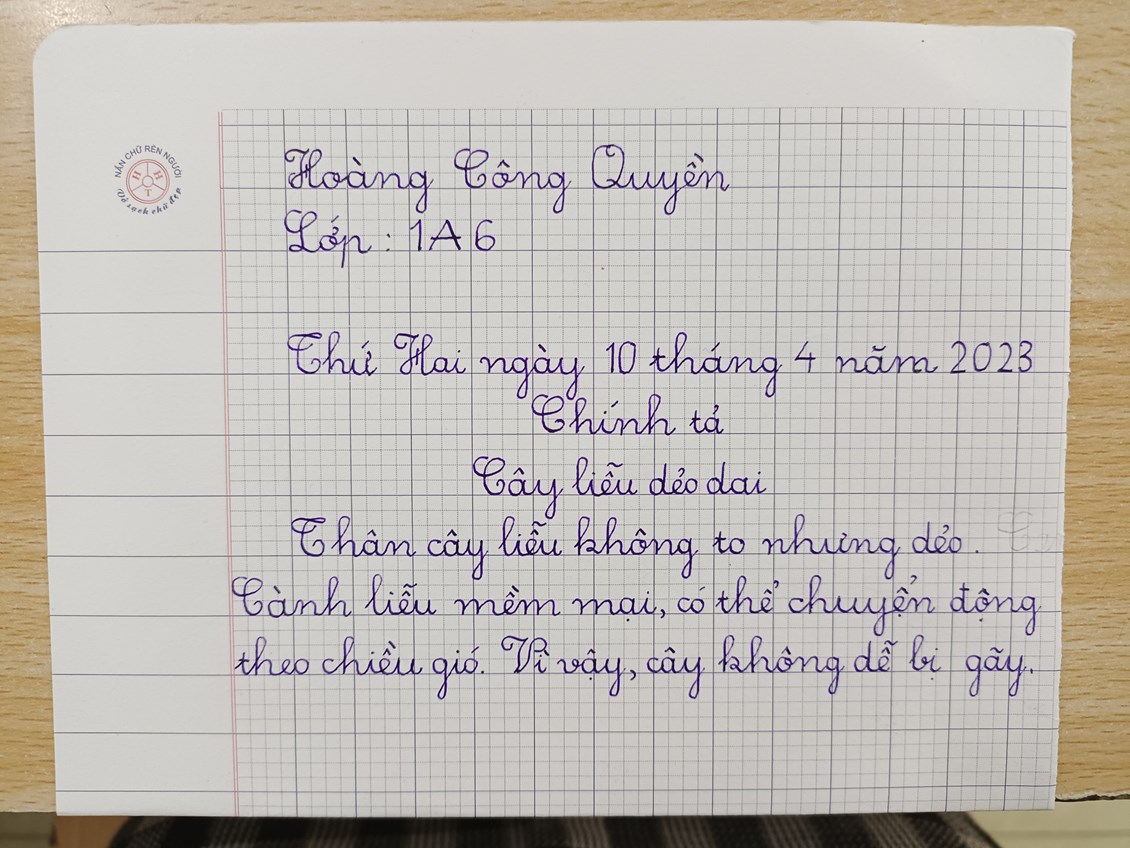 NẮN CHỮ RÈN NGƯỜI
HHT
Vở sạch chữ đẹp
Hoàng Công Quyền
Lớp : 1A6
Thứ Hai ngày 10 tháng 4 năm 2023
Chính tả
Cây liễu dẻo dai
Thân cây liễu không to nhưng dẻo.
Cành liễu mềm mại, có thể chuyển động
theo chiều gió. Vì vậy, cây không dễ bị gãy.